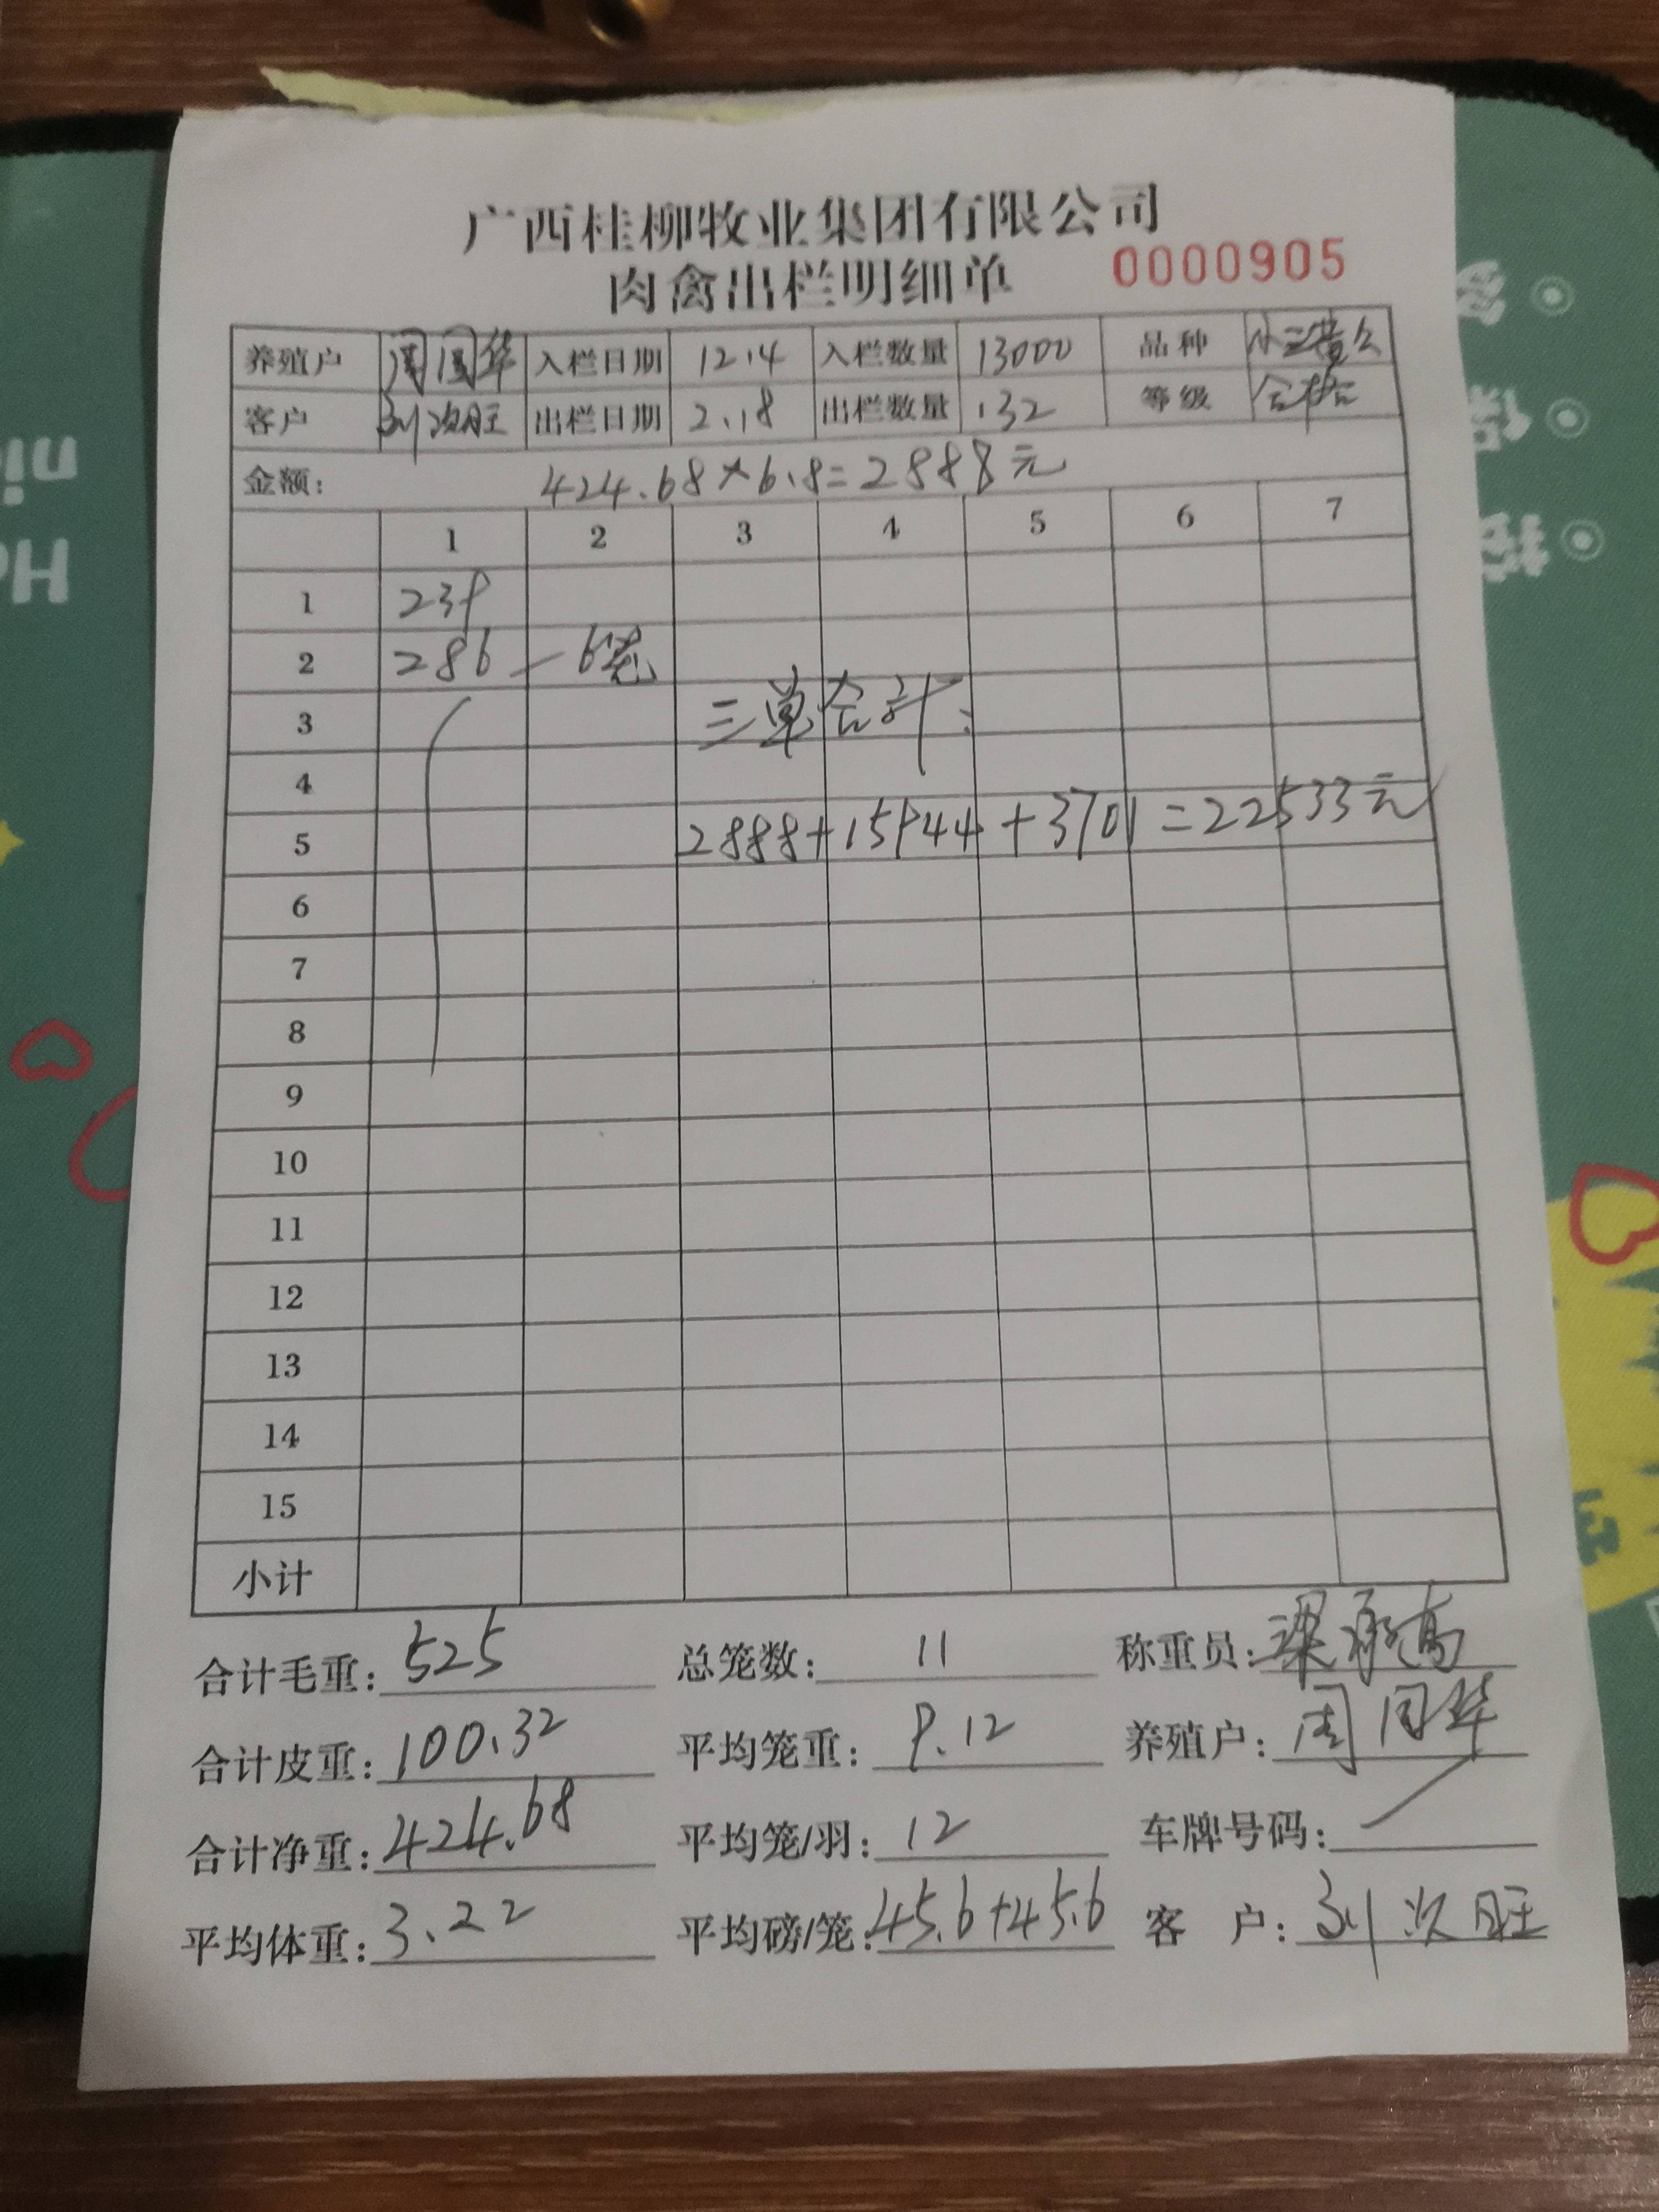 广西桂柳牧业集团有限公司
肉禽出栏明细单 0000905
养殖户 周国华 入栏日期 12.14 入栏数量 13000 品种 小三黄公
客户 刘次旺 出栏日期 2.18 出栏数量 132 等级 合格
金额: 424.68×6.8=2888元
1 2 3 4 5 6 7
1 239
2 286 — 6笼
3 三单合计:
4
5 2888+15944+3701=22533元
6
7
8
9
10
11
12
13
14
15
小计
合计毛重: 525 总笼数: 11 称重员: 梁承高
合计皮重: 100.32 平均笼重: 9.12 养殖户: 周国华
合计净重: 424.68 平均笼/羽: 12 车牌号码:
平均体重: 3.22 平均磅/笼: 45.6+45.6 客 户: 刘次旺